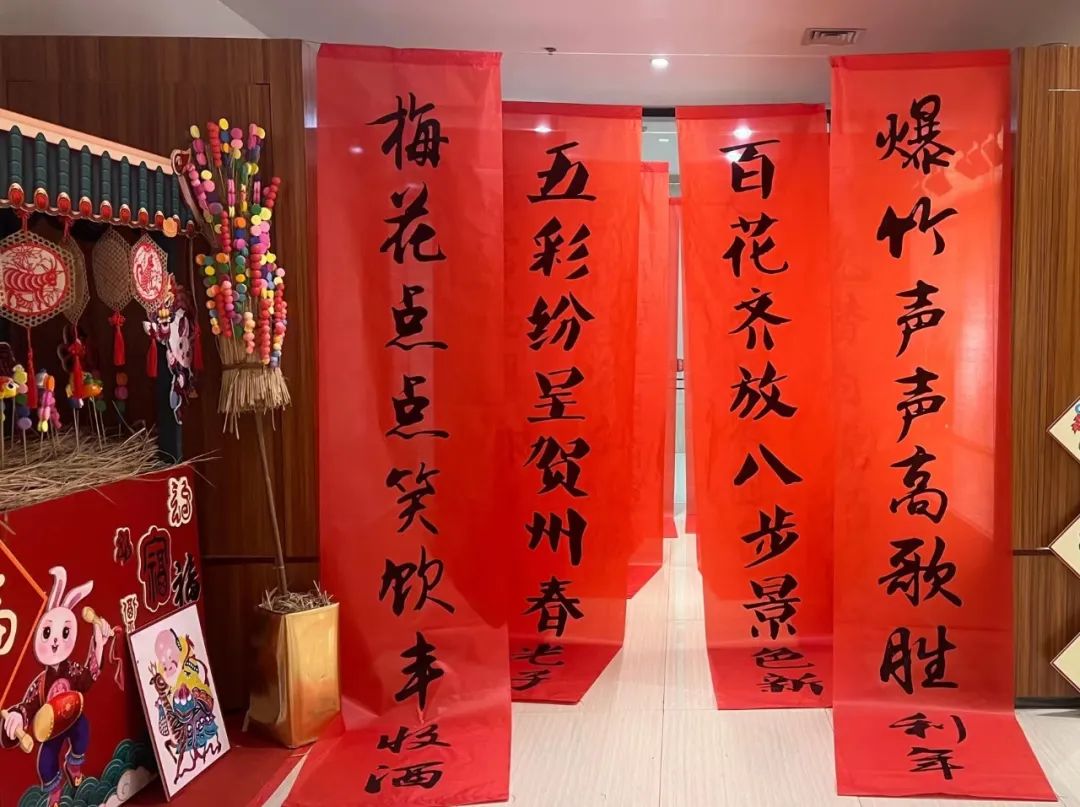 爆竹声声高歌胜利年
百花齐放八步景色新
五彩纷呈贺州春光好
梅花点点笑饮丰收酒
福
福
福